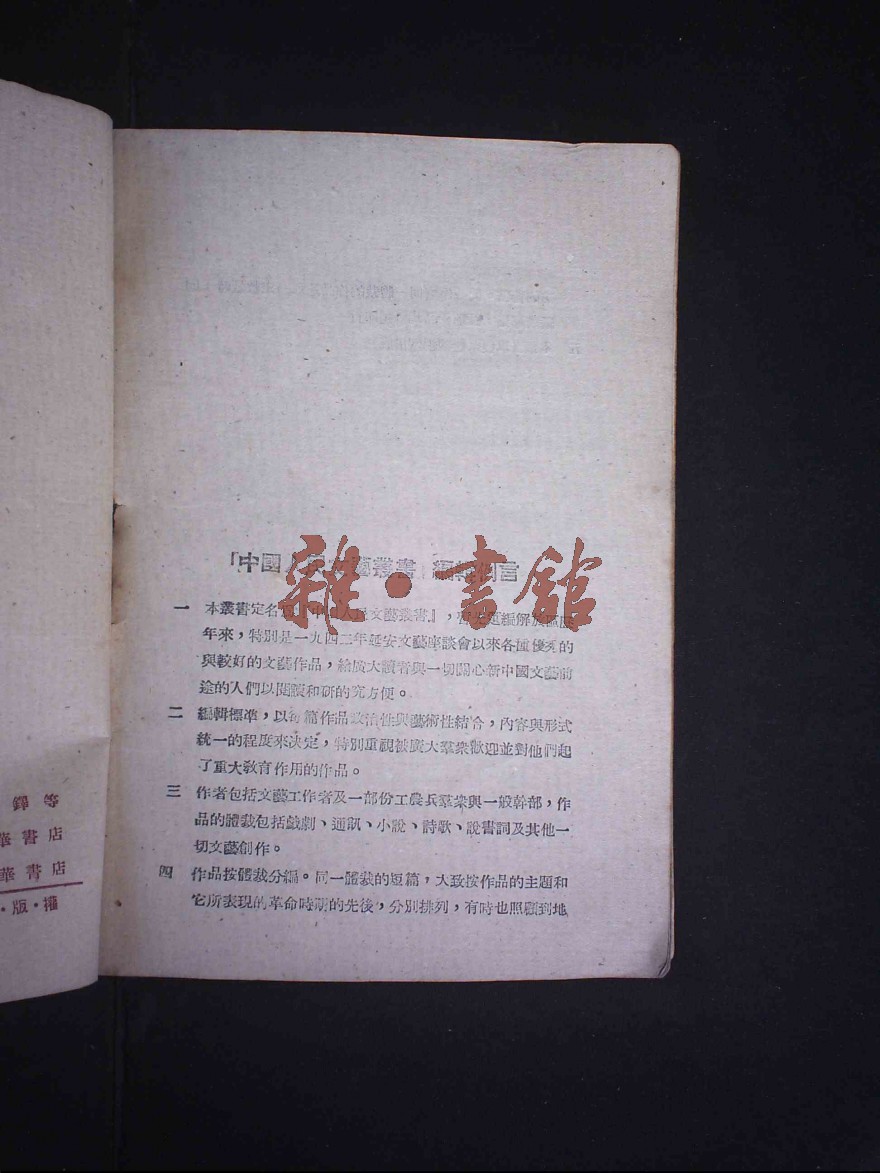 鐸等
華書店
華書店
・版・權
「中國人民文藝叢書」編輯例言
雜・書館
一 本叢書定名爲『中國人民文藝叢書』,
年來,特別是一九四二年延安文藝座談會以來各種優秀的
與較好的文藝作品,給廣大讀者與一切關心新中國文藝前
途的人們以閱讀和研的究方便。
二 編輯標準,以每篇作品政治性與藝術性結合,內容與形式
統一的程度來決定,特別重視被廣大羣衆歡迎並對他們起
了重大敎育作用的作品。
三 作者包括文藝工作者及一部份工農兵羣衆與一般幹部,作
品的體裁包括戲劇、通訊、小說、詩歌、說書詞及其他一
切文藝創作。
四 作品按體裁分編。同一體裁的短篇,大致按作品的主題和
它所表現的革命時期的先後,分別排列,有時也照顧到地